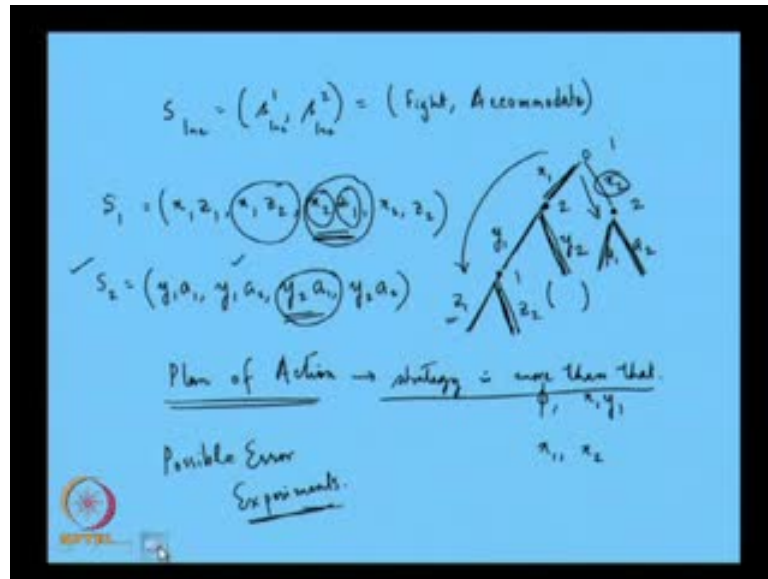 S_Inc = (s¹_Inc, s²_Inc) = (Fight, Accommodate)
S₁ = (x₁ z₁, x₁ z₂, x₂ z₁, x₂ z₂)
S₂ = (y₁ a₁, y₁ a₂, y₂ a₁, y₂ a₂)
1
x₁ x₂
2 2
y₁ y₂ a₁ a₂
1
z₁ z₂ ( )
Plan of Action → strategy is more than that.
φ, x₁ y₁
x₁, x₂
Possible Error
Experiments.
NPTEL